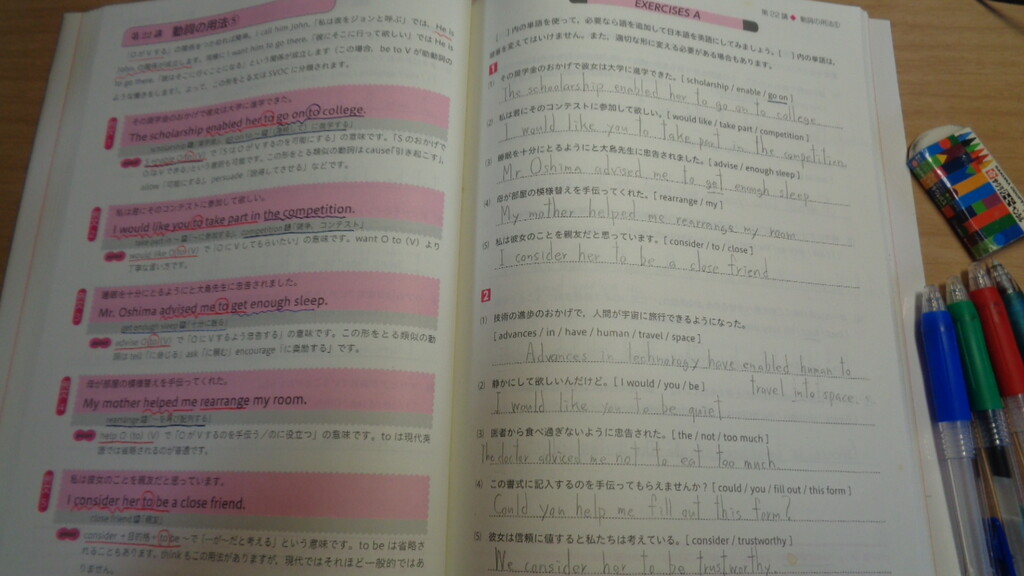 第22講 動詞の用法⑤
その奨学金のおかげで彼女は大学に進学できた。
The scholarship enabled her to go on to college.
私は君にそのコンテストに参加して欲しい。
I would like you to take part in the competition.
would like O to (V) で「OにVしてもらいたい」の意味です。want O to (V) より
丁寧な言い方です。
睡眠を十分にとるようにと大島先生に忠告されました。
Mr. Oshima advised me to get enough sleep.
advise O to (V) で「OにVするよう忠告する」の意味です。この形をとる類似の動
詞は tell「に命じる」ask「に頼む」encourage「に奨励する」です。
母が部屋の模様替えを手伝ってくれた。
My mother helped me rearrange my room.
help O (to) (V) で「OがVするのを手伝う/のに役立つ」の意味です。to は現代英
語では省略されるのが普通です。
私は彼女のことを親友だと思っています。
I consider her to be a close friend.
consider + 目的格 + to be ~で「…が~だと考える」という意味です。to be は省略さ
れることもあります。think もこの用法がありますが、現代ではそれほど一般的ではあ
りません。
EXERCISES A
第22講 ◆ 動詞の用法⑤
[ ]内の単語を使って、必要なら語を追加して日本語を英語にしてみましょう。[ ]内の単語は、
順番を変えてはいけません。また、適切な形に変える必要がある場合もあります。
1
(1) その奨学金のおかげで彼女は大学に進学できた。[ scholarship / enable / go on ]
The scholarship enabled her to go on to college
(2) 私は君にそのコンテストに参加して欲しい。[ would like / take part / competition ]
I would like you to take part in the competition
(3) 睡眠を十分にとるようにと大島先生に忠告されました。[ advise / enough sleep ]
Mr. Oshima advised me to get enough sleep
(4) 母が部屋の模様替えを手伝ってくれた。[ rearrange / my ]
My mother helped me rearrange my room
(5) 私は彼女のことを親友だと思っています。[ consider / to / close ]
I consider her to be a close friend
2
(1) 技術の進歩のおかげで、人間が宇宙に旅行できるようになった。
[ advances / in / have / human / travel / space ]
Advances in technarogy have enabled human to
travel into space.
(2) 静かにして欲しいんだけど。[ I would / you / be ]
I would like you to be quiet
(3) 医者から食べ過ぎないように忠告された。[ the / not / too much ]
The doctor adviced me not to eat too much.
(4) この書式に記入するのを手伝ってもらえませんか? [ could / you / fill out / this form ]
Could you help me fill out this form?
(5) 彼女は信頼に値すると私たちは考えている。[ consider / trustworthy ]
We consider her to be trustworthy.